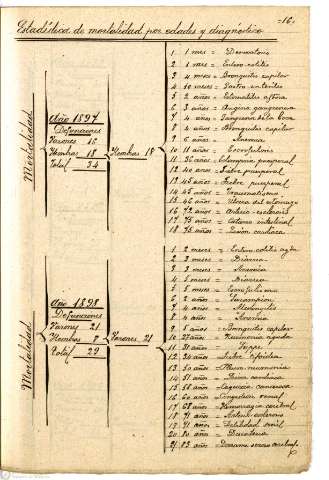 -16-
Estadística de mortalidad por edades y diagnóstico
Mortalidad
Año 1897
Defunciones
Varones 16
Hembras 18
Total 34
Hembras 18
1 1 mes =
2 1 mes = Entero-colitis
3 4 meses = Bronquitis capilar
4 10 meses = Gastro-enteritis
5 2 años = Estomatitis aftosa
6 3 años = Angina gangrenosa
7 4 años = Gangrena de la boca
8 4 años = Bronquitis capilar
9 6 años = Anemia
10 11 años = Escrofulosis
11 36 años = Eclampsia puerperal
12 40 años = Fiebre puerperal
13 45 años = Fiebre puerperal
14 45 años = Traumatismo
15 46 años = Úlcera del estómago
16 72 años = Arterio-esclerosis
17 75 años = Catarro intestinal
18 75 años = Lesión cardiaca
Mortalidad
Año 1898
Defunciones
Varones 21
Hembras 8
Total 29
Varones 21
1 2 meses = Entero-colitis agda
2 3 meses = Diarrea
3 3 meses =
4 5 meses = Diarrea
5 5 meses =
6 2 años = Sarampion
7 4 años = Meningitis
8 4 años =
9 5 años = Bronquitis capilar
10 27 años = Neumonia aguda
11 31 años = Grippe
12 34 años = Fiebre tifoidea
13 50 años =
14 51 años =
15 56 años = Caquexia cancerosa
16 60 años = Congestion renal
17 68 años = Hemorragia cerebral
18 71 años = Arterio-esclerosis
19 71 años = Debilidad senil
20 80 años =
21 83 años = Derrame seroso cerebral